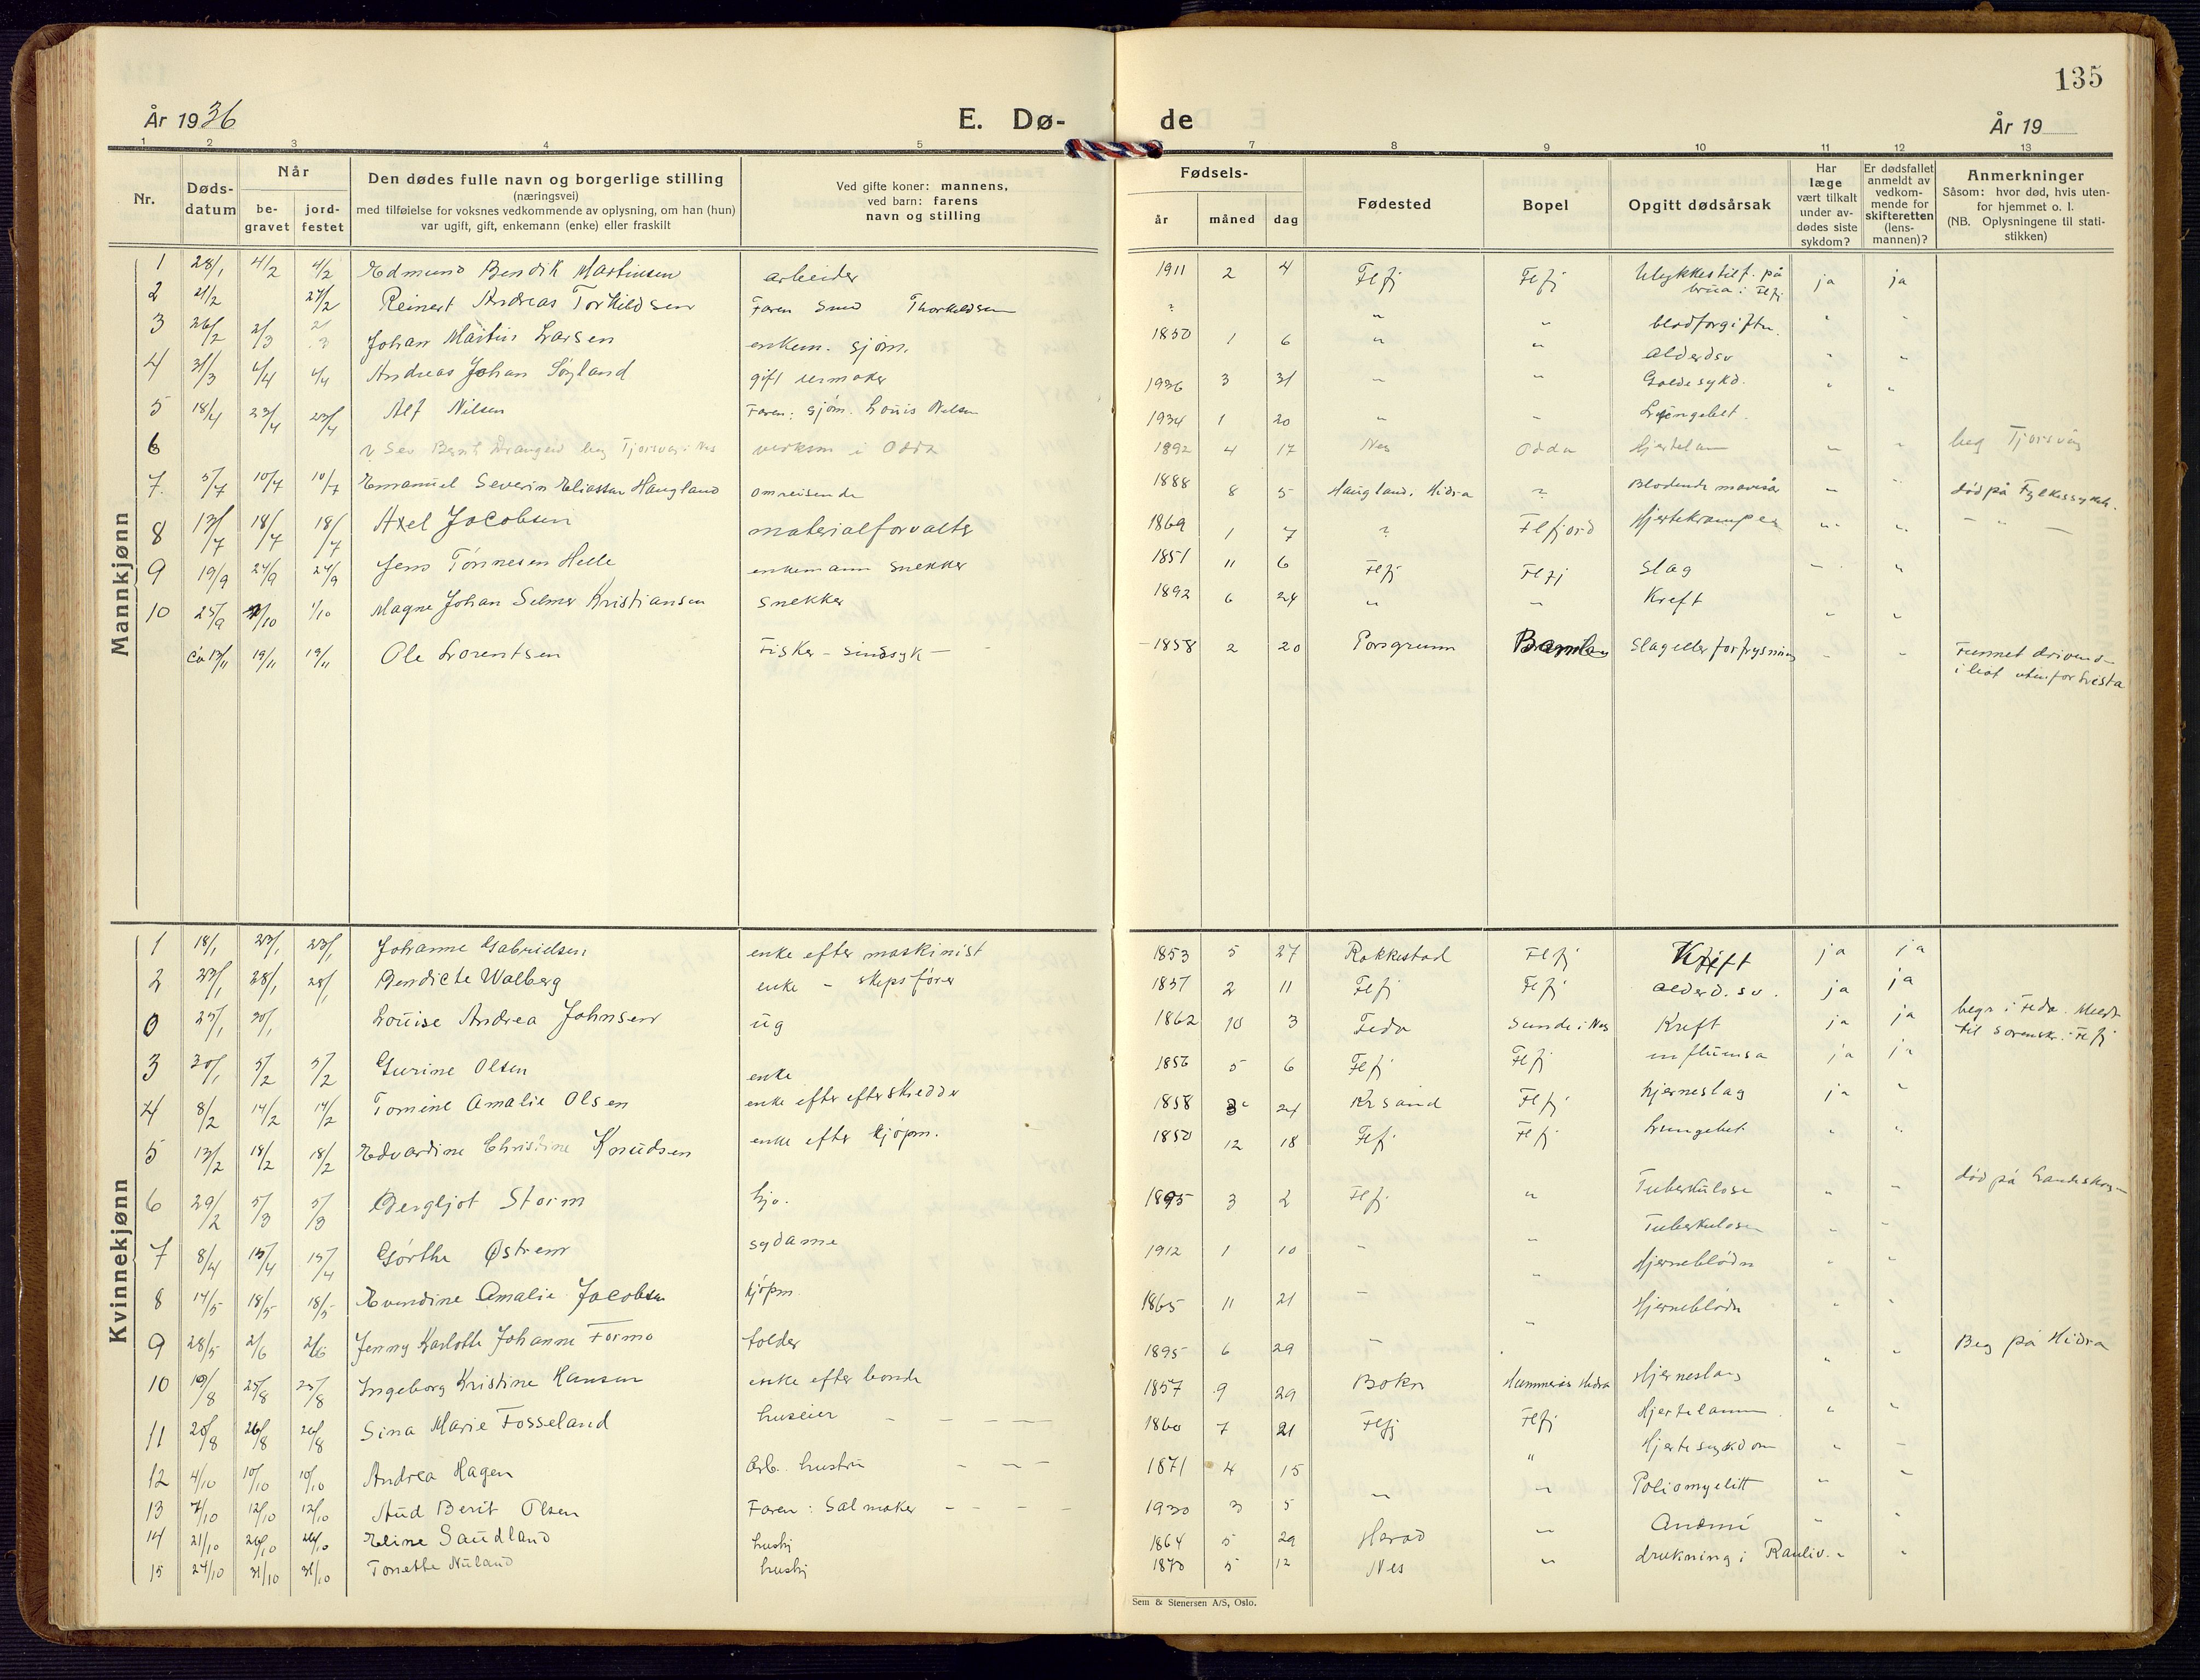 135
År 1936
E. Dø-
de
År 19
1 2 3 4 5 7 8 9 10 11 12 13
Nr.
Døds-
datum
Når
be-
gravet
jord-
festet
Den dødes fulle navn og borgerlige stilling
(næringsvei)
med tilføielse for voksnes vedkommende av oplysning, om han (hun)
var ugift, gift, enkemann (enke) eller fraskilt
Ved gifte koner: mannens,
ved barn: farens
navn og stilling
Fødsels-
år måned dag
Fødested
Bopel
Opgitt dødsårsak
Har
læge
vært tilkalt
under av-
dødes siste
sykdom?
Er dødsfallet
anmeldt av
vedkom-
mende for
skifteretten
(lens-
mannen)?
Anmerkninger
Såsom: hvor død, hvis uten-
for hjemmet o. l.
(NB. Oplysningene til stati-
stikken)
Mannkjønn
1 28/1 4/2 4/2 Edmund Bendik Martinsen arbeider 1911 2 4 Flfj Flfj Ulykkestilf. på ja ja
brua i Flfj
2 21/2 27/2 Reinert Andreas Torkildsen Faren Smed Thorkildsen ? " " blodforgiftn. " "
3 26/2 2/3 Johan Martin Larsen enkem. sjøm. 1850 1 6 " " alderdsv " "
4 31/3 4/4 4/4 Andreas Johan Søyland gift urmaker 1936 3 31 " " Galdesykd. " "
5 18/4 23/4 23/4 Alf Nilsen Faren: sjøm. Louis Nilsen 1934 1 20 " " Lungebet.
6 Sev Bernt Drangeid beg Tjorsvåg i Nes verksm i Odda 1892 4 17 Nes Odda Hjertelam " " beg Tjorsvåg
7. 5/7 10/7 10/7 Emanuel Severin Eliassen Haugland omreisende 1888 8 5 Haugland, Hidra ? Blødende mavesår " " død på Fylkessykeh.
8 13/7 18/7 18/7 Axel Jacobsen materialforvalter 1869 1 7 ? Flfjord Hjertekrampe " " - " -
9 19/9 24/9 24/9 Jens Tønnesen Helle enkemann snekker 1851 11 6 Flfj Flfj Slag " "
10 25/9 1/10 1/10 Magne Johan Selmer Kristiansen snekker 1892 6 24 " " Kreft " "
Ca 13/11 19/11 19/11 Ole Lorentsen Fisker - sindssyk - 1858 2 20 Porsgrunn Slag eller forfrysning " " Funnet drivende
i utenfor Lista
Kvinnekjønn
1 18/1 23/1 23/1 Johanne Gabrielsen enke efter maskinist 1853 5 27 Rakkestad Flfj Kreft ja ja
2 23/1 28/1 28/1 Bendicte Walberg enke - skipsfører 1857 2 11 Flfj Flfj alderd. sv. ja ja
0 25/1 30/1 Louise Andrea Johnsen ug 1862 10 3 Feda Sande i Nes Kreft ja ja begr i Feda. Meldt
til sorenskr. i Flfj
3 30/1 5/2 5/2 Gurine Olsen enke 1856 5 6 Flfj Flfj influensa ja ja
4 8/2 14/2 14/2 Tomine Amalie Olsen enke efter efter skredder 1858 24 Krsand Flfj hjerneslag ja "
5 13/2 18/2 18/2 Edvardine Christine Knudsen enke efter kjøpm. 1850 12 18 Flfj Flfj Lungebet " "
6 29/2 5/3 5/3 Bergljot Storm hjv. 1895 3 2 Flfj " Tuberkulose " " død på
7 8/4 15/4 15/4 Gørthe Østrem sydame 1912 1 10 " " Tuberkulose " "
8 14/5 18/5 18/5 Evendine Amalie Jacobsen kjøpm 1865 11 21 " " Hjerneblødn " "
9 28/5 2/6 2/6 Jenny Karlotte Johanne Formo tolder 1895 6 29 " " Hjerneblødn " "
10 19/8 25/8 25/8 Ingeborg Kristine Hansen enke efter bonde 1857 9 29 Bokn Hammerås Hidra Hjerneslag " " Beg på Hidra
11 20/8 26/8 26/8 Sina Marie Fosseland huseier - - - - - 1860 7 21 Flfj Flfj Hjertelamm " "
12 4/10 10/10 10/10 Andrea Hagen Arb. hustru - - - 1871 4 15 " Hjertesykdom " "
13 7/10 12/10 12/10 Aud Berit Olsen Faren: Salmaker - - - - 1930 3 5 " " Poliomyelitt " "
14 21/10 26/10 26/10 Eline Saudland hustr 1864 5 29 Herad " Anæmi " "
15 24/10 31/10 31/10 Tonette Nuland hustr 1870 5 12 Nes " drukning i Rauliv. " "
Sem & Stenersen A/S, Oslo.